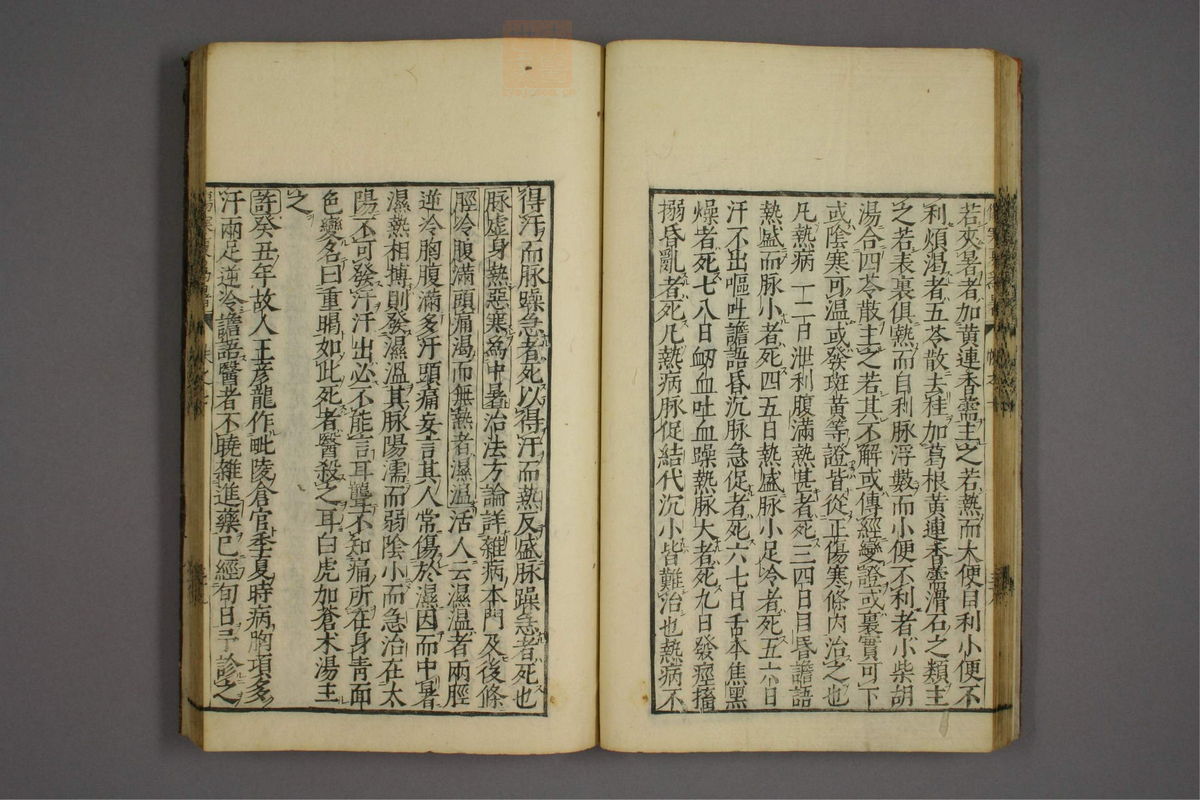 若夾暑者加黄連香薷主之若熱而大便自利小便不
利煩渴者五苓散去桂加葛根黄連香薷滑石之類主
之若表裏俱熱而自利脉浮數而小便不利者小柴胡
湯合四苓散主之若其不解或傳經變證或裏實可下
或陰寒可温或發斑黄等證皆從正傷寒條内治之也
凡熱病一二日泄利腹滿熱甚者死三四日目昏譫語
熱盛而脉小者死四五日熱盛脉小足冷者死五六日
汗不出嘔吐譫語昏沉脉急促者死六七日舌本焦黑
燥者死七八日衂血吐血躁熱脉大者死九日發痙搐
搦昏亂者死凡熱病脉促結代沉小皆難治也熱病不
得汗而脉躁急者死以得汗而熱反盛脉躁急者死也
脉虛身熱惡寒為中暑治法方論詳雜病本門及後條
脛冷腹滿頭痛渴而無熱者濕温活人云濕温者兩脛
逆冷胸腹滿多汗頭痛妄言其人常傷於濕因而中暑
濕熱相搏則發濕温其脉陽濡而弱陰小而急治在太
陽不可發汗汗出必不能言耳聾不知痛所在身青面
色變名曰重暍如此死者醫殺之耳白虎加蒼术湯主
之
許癸丑年故人王彦龍作毗陵倉官季夏時病胸項多
汗兩足逆冷譫語醫者不曉雜進藥已經旬日予診之